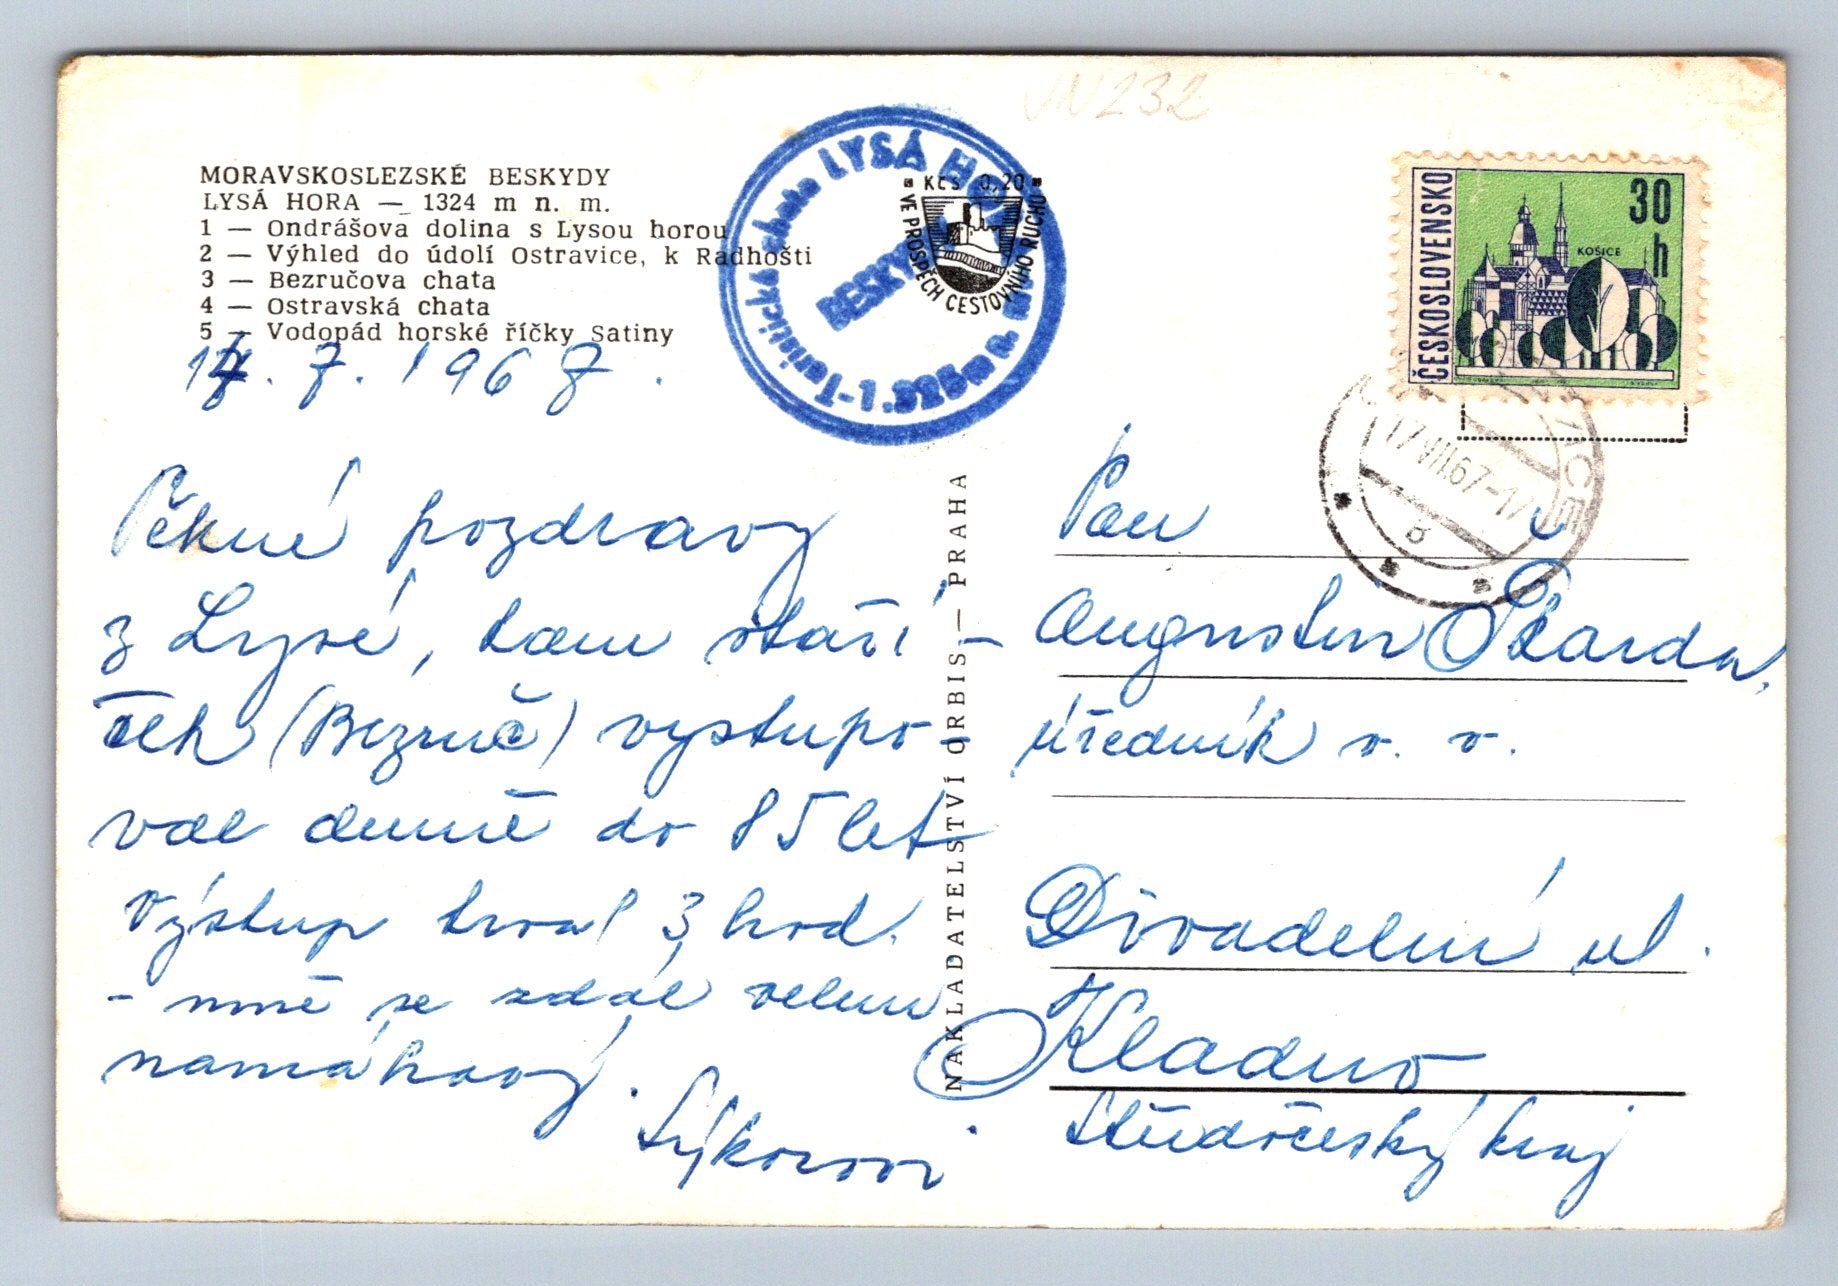 VN232
MORAVSKOSLEZSKÉ BESKYDY
LYSÁ HORA — 1324 m n. m.
1 — Ondrášova dolina s Lysou horou
2 — Výhled do údolí Ostravice, k Radhošti
3 — Bezručova chata
4 — Ostravská chata
5 — Vodopád horské říčky Satiny
Turistická chata LYSÁ HORA
BESKYDY
1325 m n. m.
Kčs 0,20
VE PROSPĚCH CESTOVNÍHO RUCHU
ČESKOSLOVENSKO
30 h
KOŠICE
17.VII.67-17
B
17. 7. 1967.
Pěkné pozdravy
z Lysé, kam staří-
ček (Bezruč) vystupo-
val denně do 85 let
Výstup trval 3 hod.
- mně se zdál velmi
namáhavý.
Sýkorovi.
NAKLADATELSTVÍ ORBIS — PRAHA
Pan
Augustin
úředník v. v.
Divadelní ul.
Kladno
Středočeský kraj